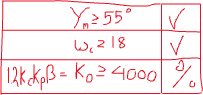 γₘ ≥ 55° ✓
ω_c ≥ 18 ✓
1,2 K_c K_p β = K_0 ≥ 4000